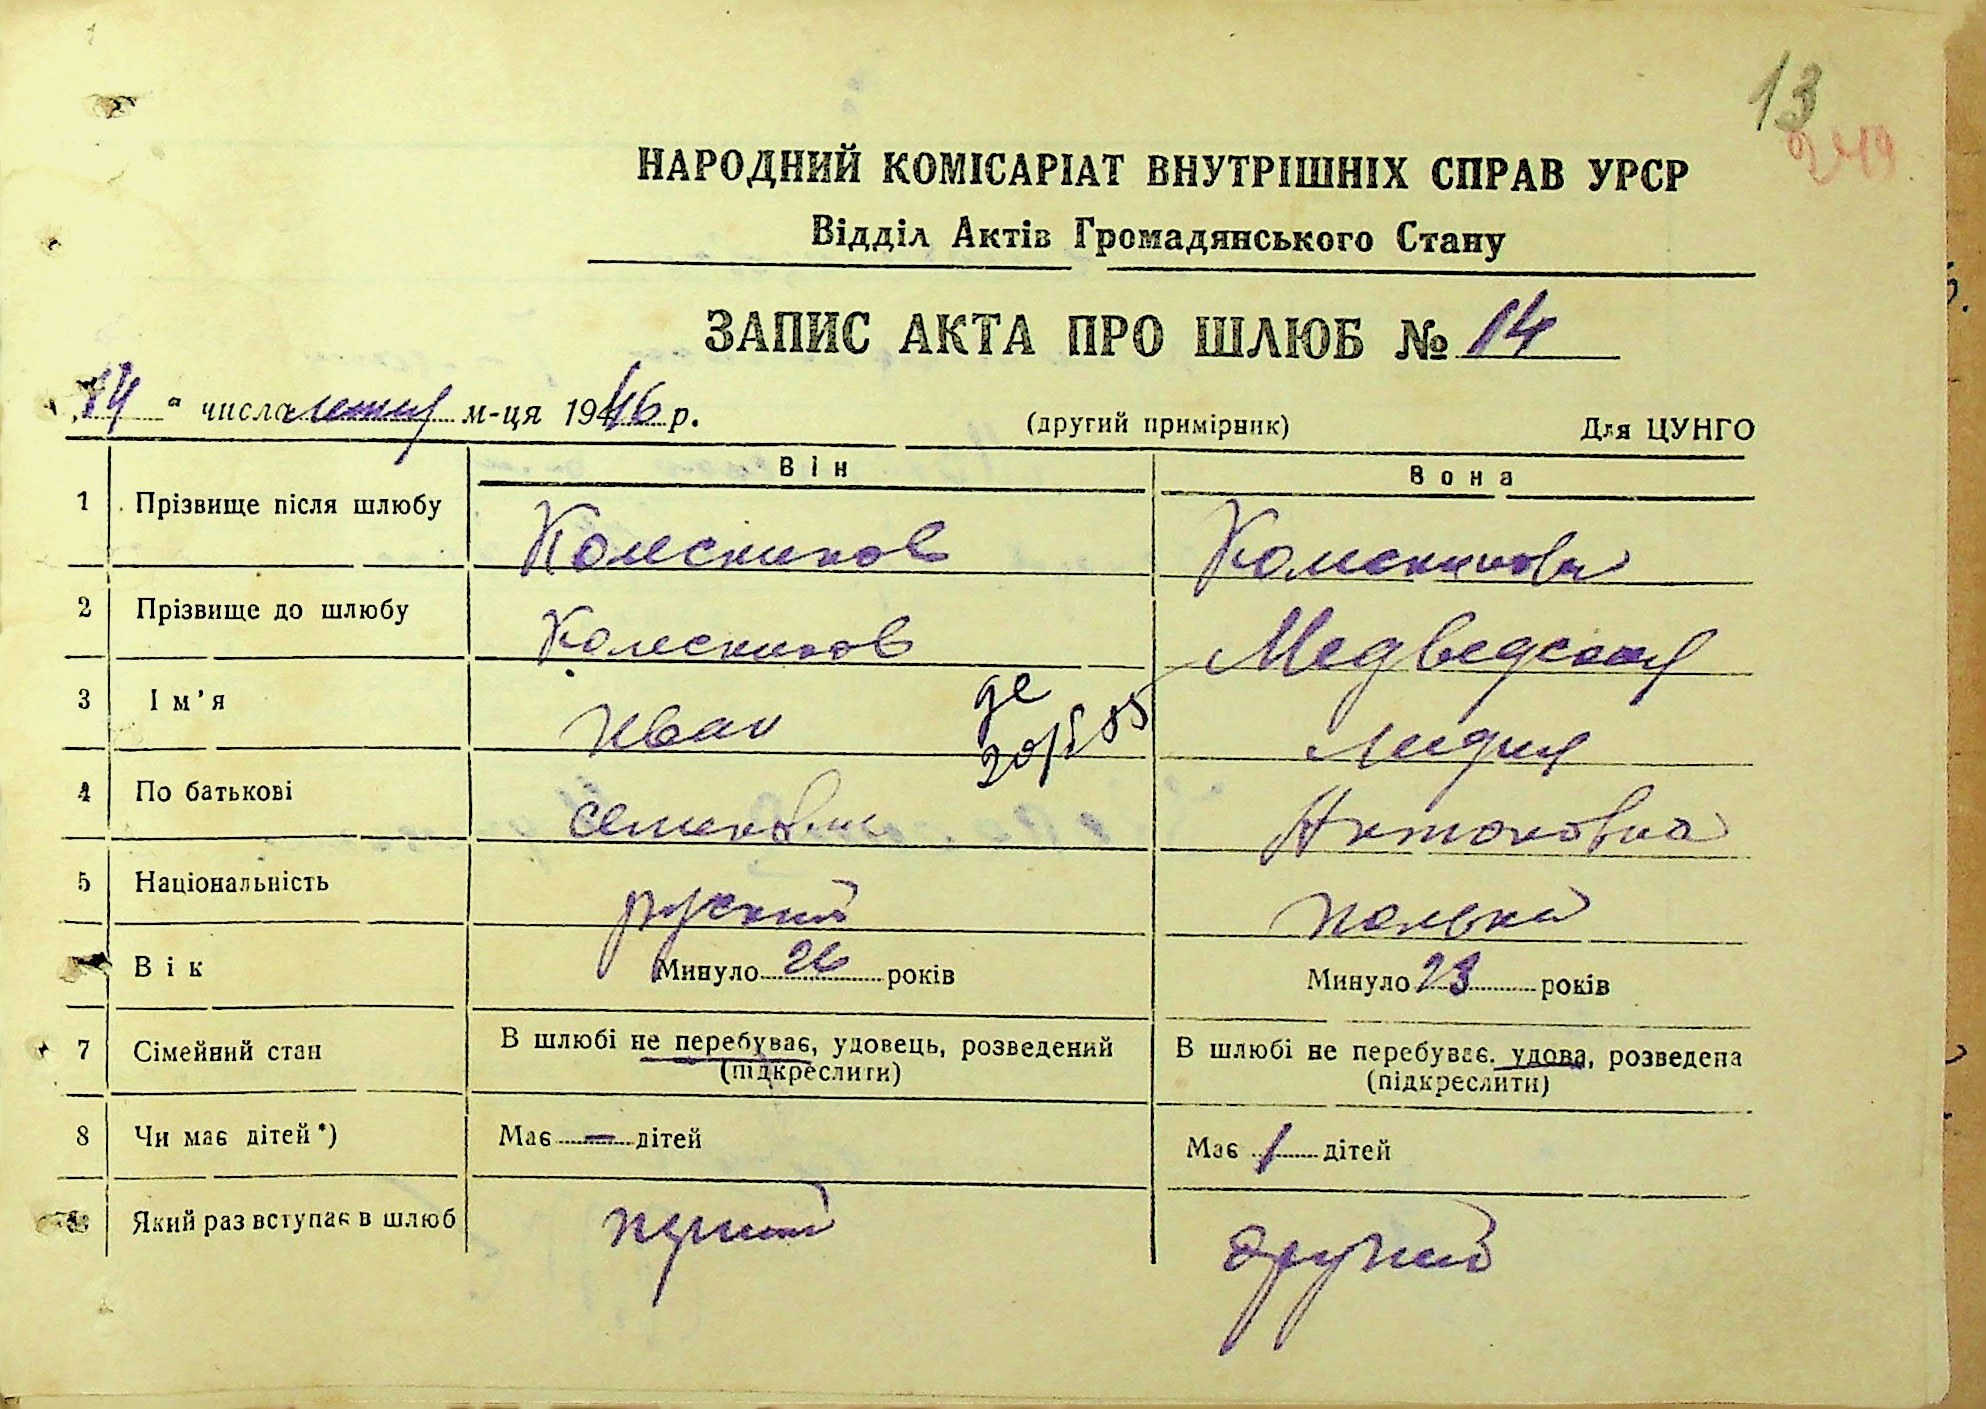 13
249
НАРОДНИЙ КОМІСАРІАТ ВНУТРІШНІХ СПРАВ УРСР
Відділ Актів Громадянського Стану
ЗАПИС АКТА ПРО ШЛЮБ № 14
14 " числа лютня м-ця 1946 р. (другий примірник) Для ЦУНГО
Він Вона
1 Прізвище після шлюбу Колесников Колесникова
2 Прізвище до шлюбу Колесников Медведская
3 Ім'я Иван Лидия
4 По батькові Семенович Антоновна
5 Національність руский полька
Вік Минуло 26 років Минуло 23 років
7 Сімейний стан В шлюбі не перебуває, удовець, розведений (підкреслити) В шлюбі не перебуває, удова, розведена (підкреслити)
8 Чи має дітей*) Має – дітей Має 1 дітей
Який раз вступає в шлюб другий